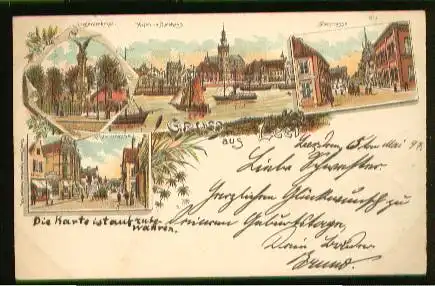 Kriegerdenkmal
Hafen u. Rathaus
Gruss
aus Leer
Leer, den 5ten Mai 98.
Liebe Schwester
Herzlichen Glückwunsch zu
Deinem Geburtstage,
Dein Bruder
Bruno.
Die Karte ist aufzube-
wahren.